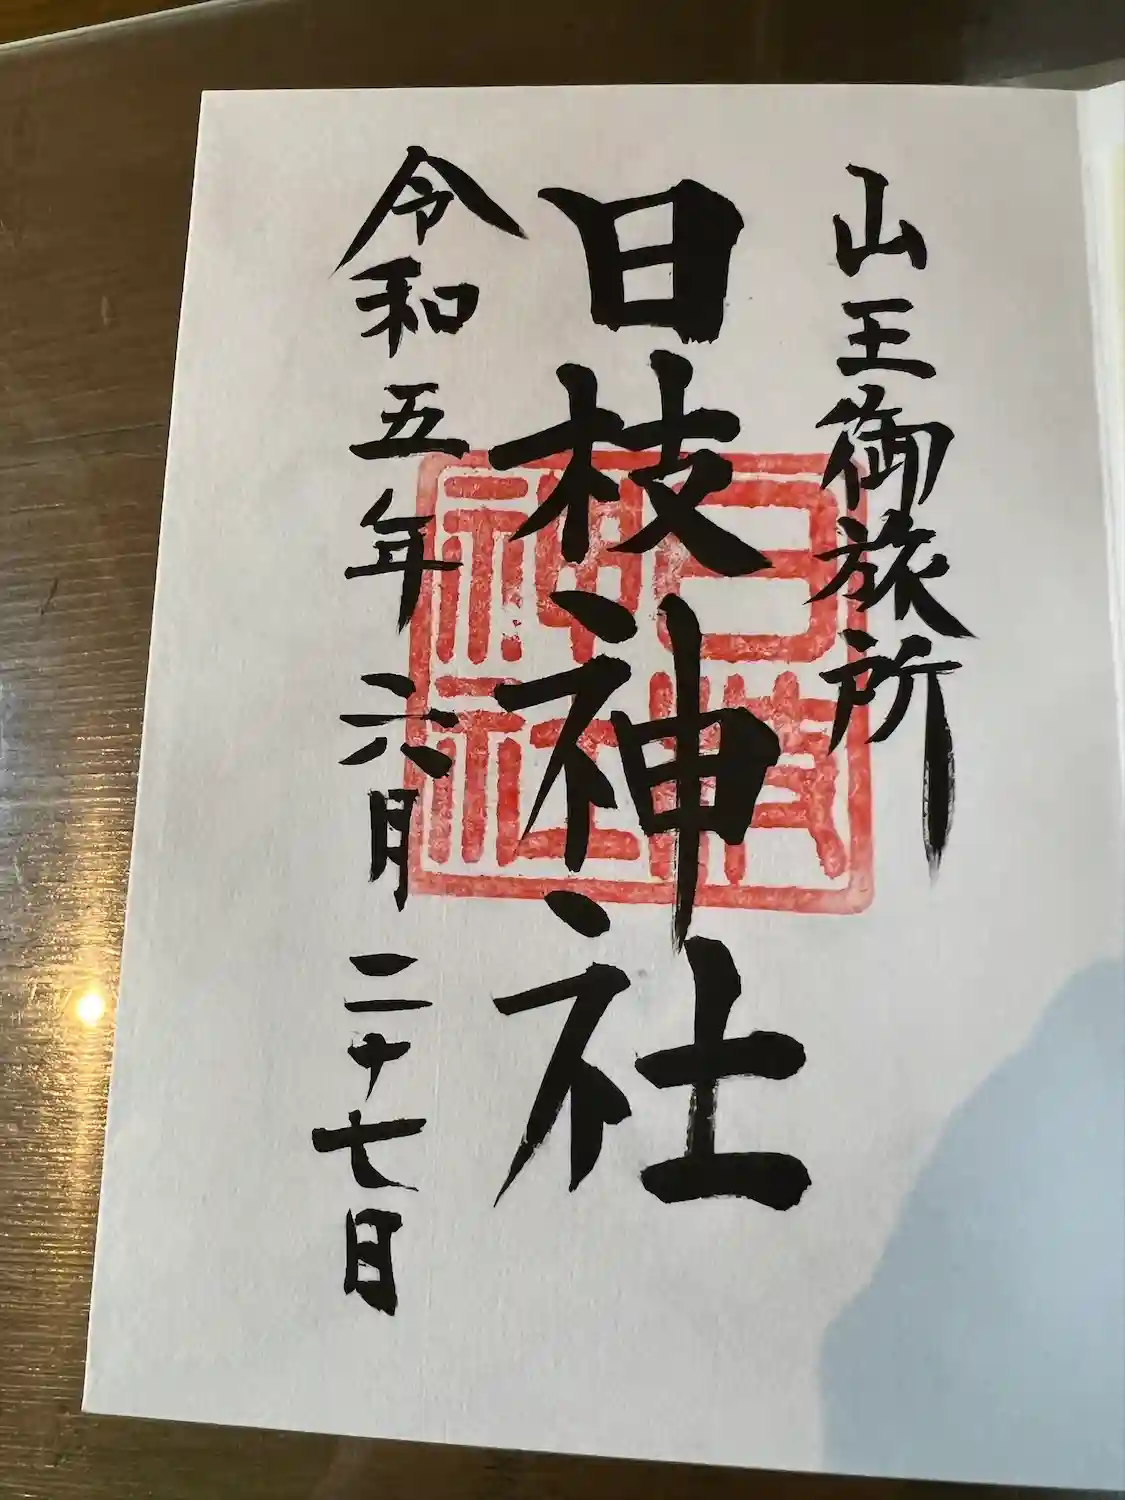 山王御旅所
日枝神社
令和五年六月二十七日
日枝
神社